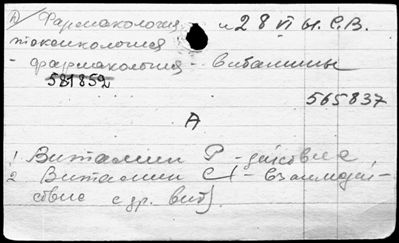 А) Фармакология и 28 VI ы. С.В.
токсикология
- фармакология - витамины
581852
565837
А
1 Витамин Р - действие,
2 Витамин С - взаимодей-
ствие с др. вит).